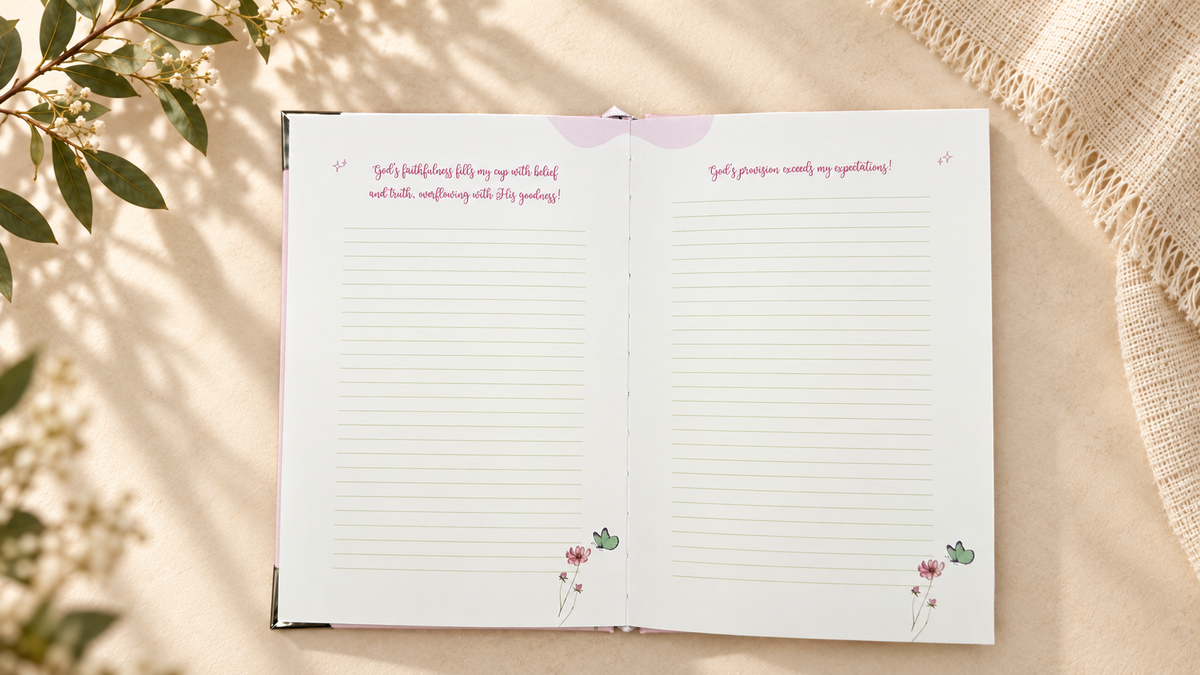 God's faithfulness fills my cup with belief
and truth, overflowing with His goodness!
God's provision exceeds my expectations!